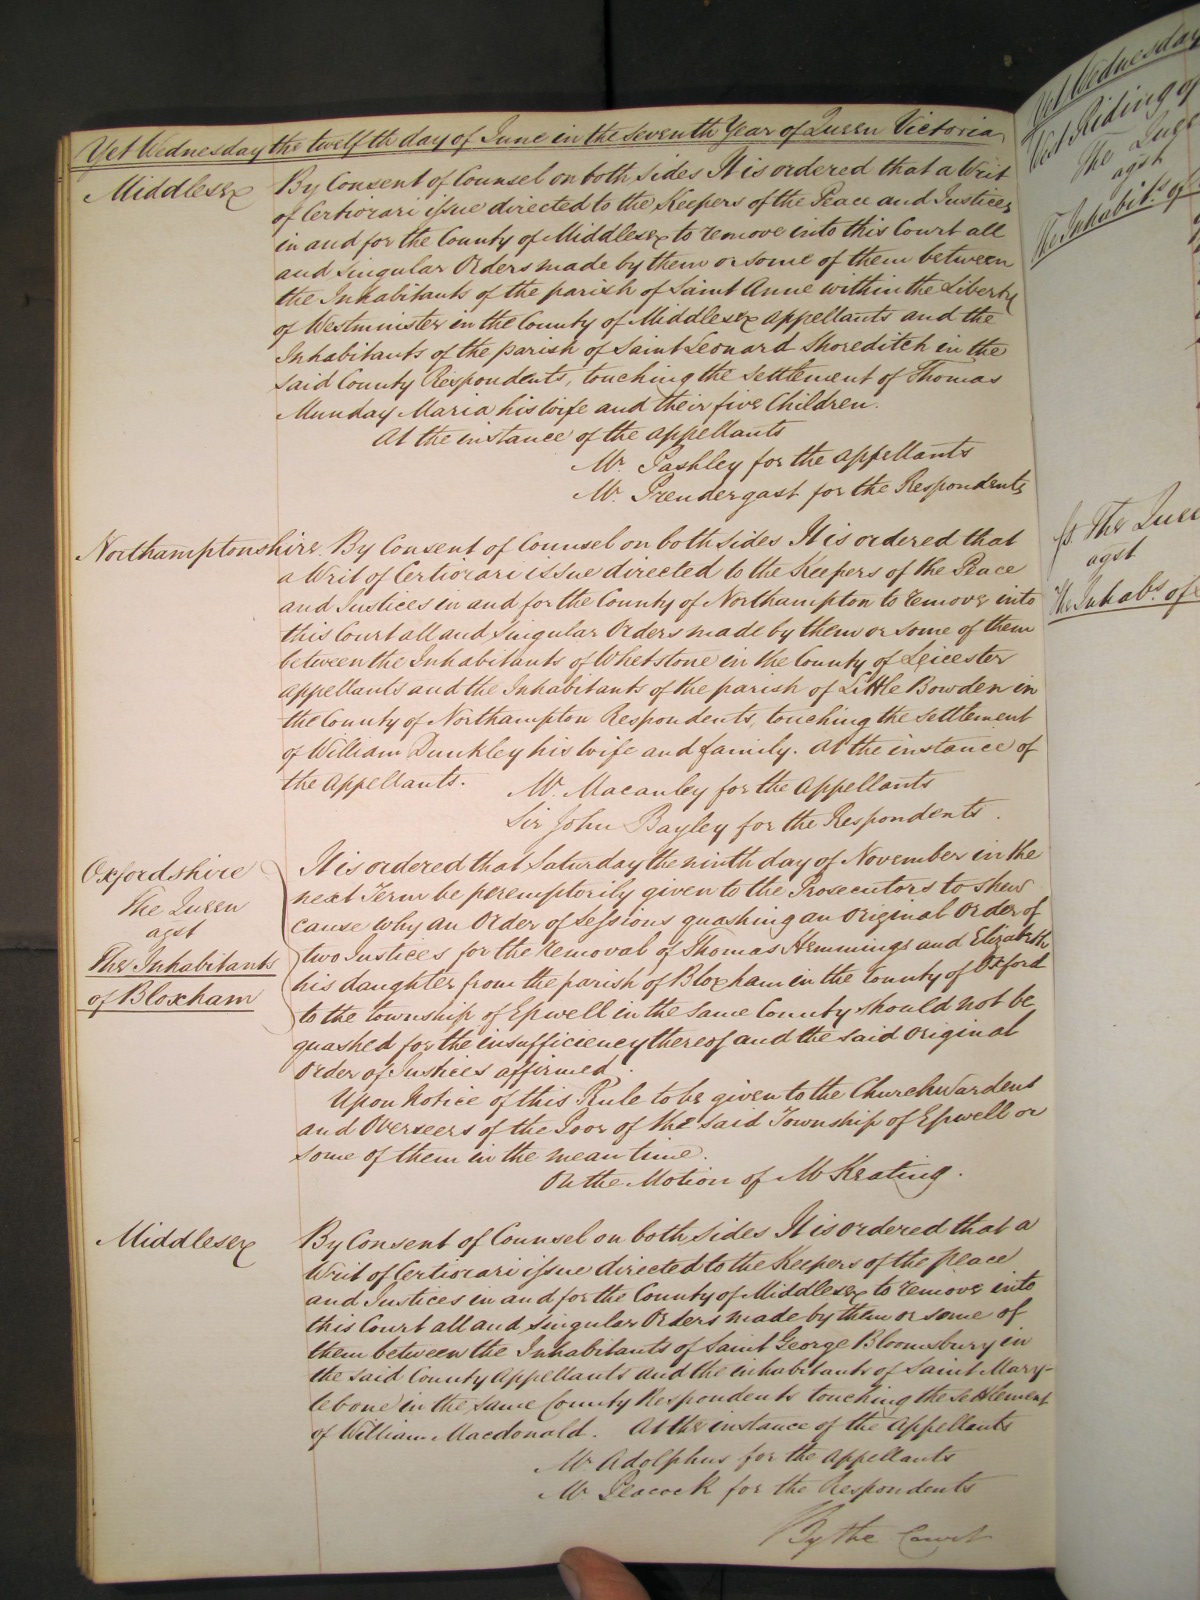 Yet Wednesday the twelfth day of June in the seventh Year of Queen Victoria
Middlesex
By Consent of Counsel on both sides It is ordered that a Writ
of Certiorari issue directed to the Keepers of the Peace and Justices
in and for the County of Middlesex to remove into this Court all
and singular Orders made by them or some of them between
the Inhabitants of the parish of Saint Anne within the Liberty
of Westminster in the County of Middlesex appellants and the
Inhabitants of the parish of Saint Leonard Shoreditch in the
said County Respondents, touching the settlement of Thomas
Munday Maria his wife and their five Children.
At the instance of the appellants
Mr. Pashley for the appellants
Mr. Prendergast for the Respondents
Northamptonshire. By Consent of Counsel on both sides It is ordered that
a Writ of Certiorari issue directed to the Keepers of the Peace
and Justices in and for the County of Northampton to remove into
this Court all and singular Orders made by them or some of them
between the Inhabitants of Whetstone in the County of Leicester
appellants and the Inhabitants of the parish of Little Bowden in
the County of Northampton Respondents, touching the settlement
of William Dunkley his wife and family. At the instance of
the appellants.
Mr. Macauley for the appellants
Sir John Bayley for the Respondents.
Oxfordshire
The Queen
agst
The Inhabitants
of Bloxham
It is ordered that Saturday the ninth day of November in the
next Term be peremptorily given to the Prosecutors to shew
cause why an Order of Sessions quashing an original Order of
two Justices for the removal of Thomas Hemmings and Elizabeth
his daughter from the parish of Bloxham in the County of Oxford
to the township of Epwell in the same County should not be
quashed for the insufficiency thereof and the said original
Order of Justices affirmed.
Upon Notice of this Rule to be given to the Churchwardens
and Overseers of the Poor of the said Township of Epwell or
some of them in the mean time.
On the Motion of Mr Keating.
Middlesex
By Consent of Counsel on both sides It is ordered that a
Writ of Certiorari issue directed to the Keepers of the peace
and Justices in and for the County of Middlesex to remove into
this Court all and singular Orders made by them or some of
them between the Inhabitants of Saint George Bloomsbury in
the said County Appellants and the inhabitants of Saint Mary-
lebone in the same County Respondents touching the settlement
of William Macdonald. At the instance of the appellants
Mr Adolphus for the appellants
Mr Peacock for the Respondents
By the Court
Yet Wednesday
West Riding of
The Quee
agst
The Inhabits. of
The Quee
agst
The Inhabs. of